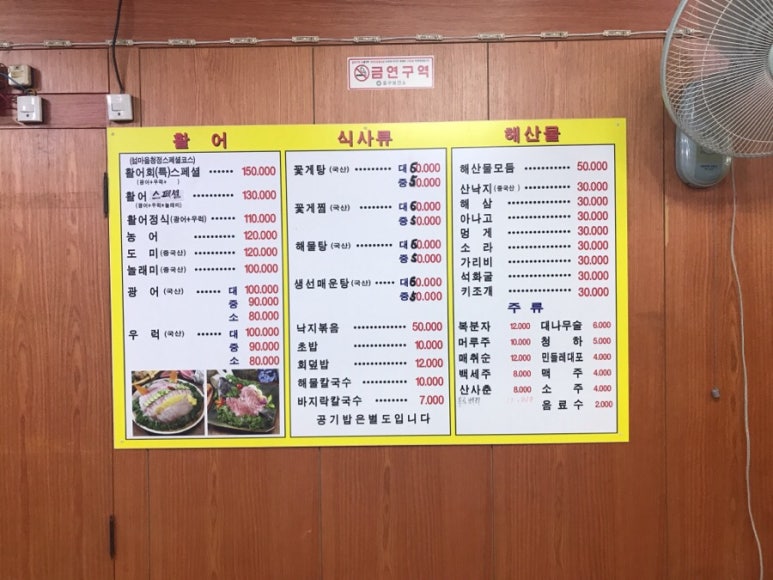 금연구역
활 어
(섬마을청정스페셜코스)
활어회(특)스페셜 ······ 150.000
(광어+우럭+ )
활어 스페셜 ······ 130.000
(광어+우럭+놀래미)
활어정식(광어+우럭) ······ 110.000
농 어 ······ 120.000
도 미(중국산) ······ 120.000
놀래미(중국산) ······ 100.000
광 어(국산) ······ 대 100.000
중 90.000
소 80.000
우 럭(국산) ······ 대 100.000
중 90.000
소 80.000
식사류
꽃게탕(국산) ······ 대 60.000
중 50.000
꽃게찜(국산) ······ 대 60.000
중 50.000
해물탕(국산) ······ 대 60.000
중 50.000
생선매운탕(국산) ······ 대 60.000
중 50.000
낙지볶음 ······ 50.000
초밥 ······ 10.000
회덮밥 ······ 12.000
해물칼국수 ······ 10.000
바지락칼국수 ······ 7.000
공기밥은별도입니다
해산물
해산물모듬 ······ 50.000
산낙지(중국산) ······ 30.000
해 삼 ······ 30.000
아나고 ······ 30.000
멍 게 ······ 30.000
소 라 ······ 30.000
가리비 ······ 30.000
석화굴 ······ 30.000
키조개 ······ 30.000
주 류
복분자 12.000 대나무술 6.000
머루주 10.000 청 하 5.000
매취순 12.000 민들레대포 4.000
백세주 8.000 맥 주 4.000
산사춘 8.000 소 주 4.000
음료수 2.000